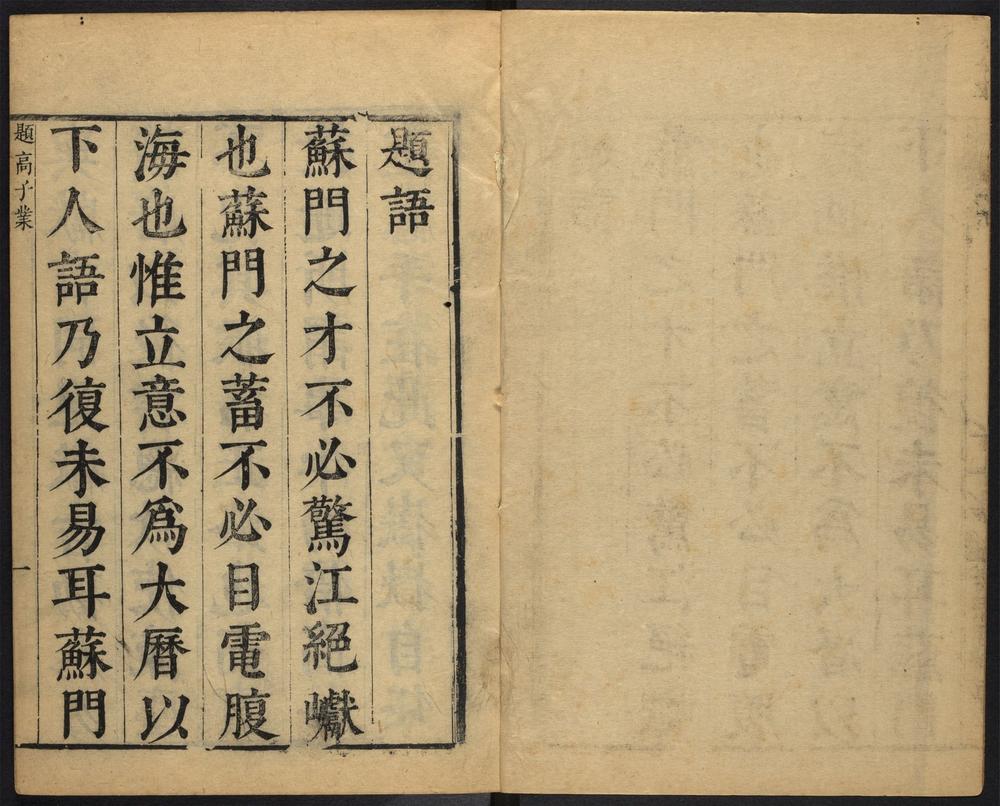 題語
蘇門之才不必驚江絕巘
也蘇門之蓄不必目電腹
海也惟立意不爲大曆以
下人語乃復未易耳蘇門
題高子業
一